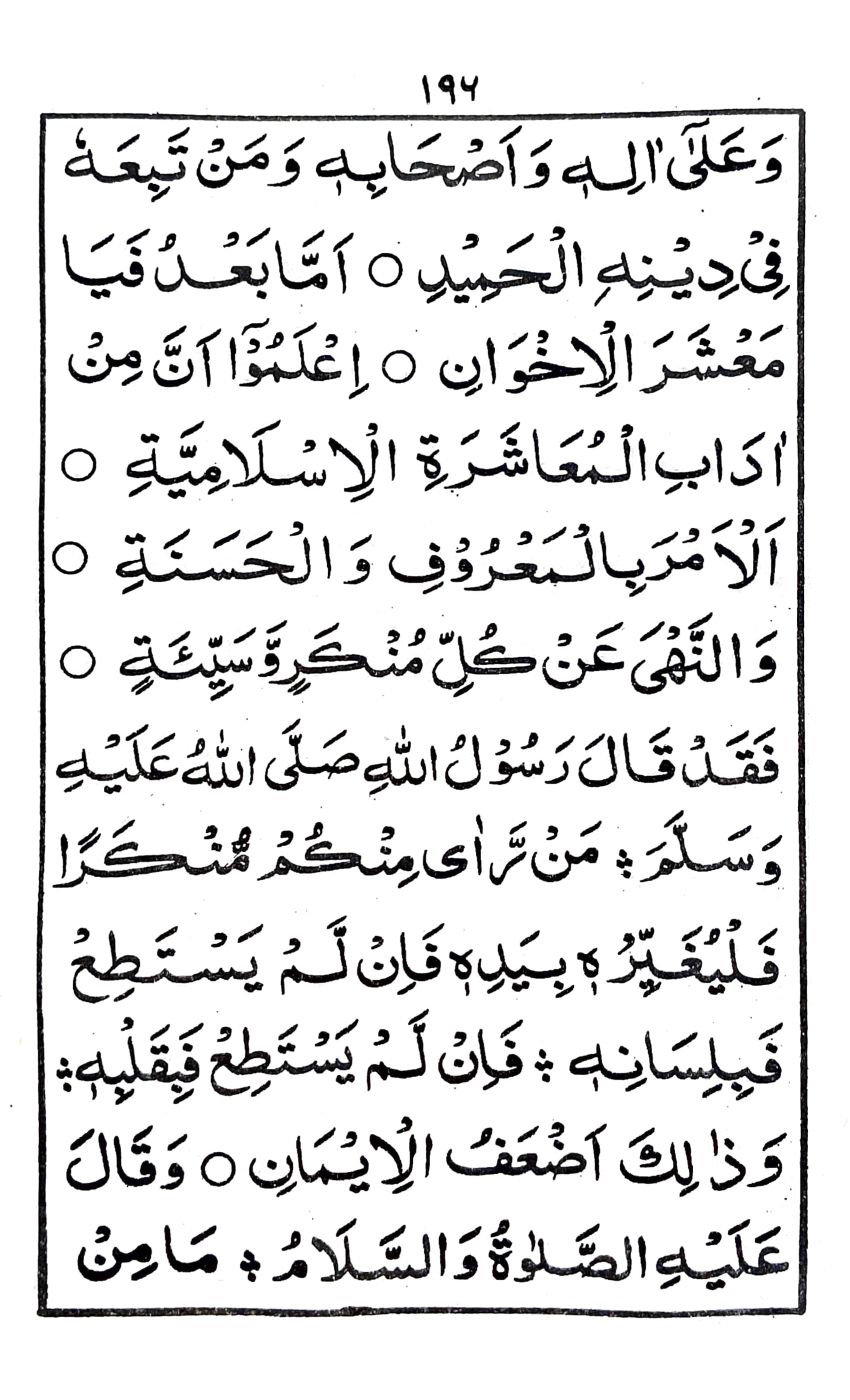 ١٩٦
وَعَلٰٓى اٰلِهٖ وَاَصْحَابِهٖ وَمَنْ تَبِعَهٗ
فِىْ دِيْنِهِ الْحَمِيْدِ ○ اَمَّا بَعْدُ فَيَا
مَعْشَرَ الْاِخْوَانِ ○ اِعْلَمُوْٓا اَنَّ مِنْ
اٰدَابِ الْمُعَاشَرَةِ الْاِسْلَامِيَّةِ ○
اَلْاَمْرَ بِالْمَعْرُوْفِ وَالْحَسَنَةِ ○
وَالنَّهْىَ عَنْ كُلِّ مُنْكَرٍ وَّسَيِّئَةٍ ○
فَقَدْ قَالَ رَسُوْلُ اللّٰهِ صَلَّى اللّٰهُ عَلَيْهِ
وَسَلَّمَ ؞ مَنْ رَّاٰى مِنْكُمْ مُّنْكَرًا
فَلْيُغَيِّرْهُ بِيَدِهٖ فَاِنْ لَّمْ يَسْتَطِعْ
فَبِلِسَانِهٖ ؞ فَاِنْ لَّمْ يَسْتَطِعْ فَبِقَلْبِهٖ ؞
وَذٰلِكَ اَضْعَفُ الْاِيْمَانِ ○ وَقَالَ
عَلَيْهِ الصَّلٰوةُ وَالسَّلَامُ ؞ مَا مِنْ